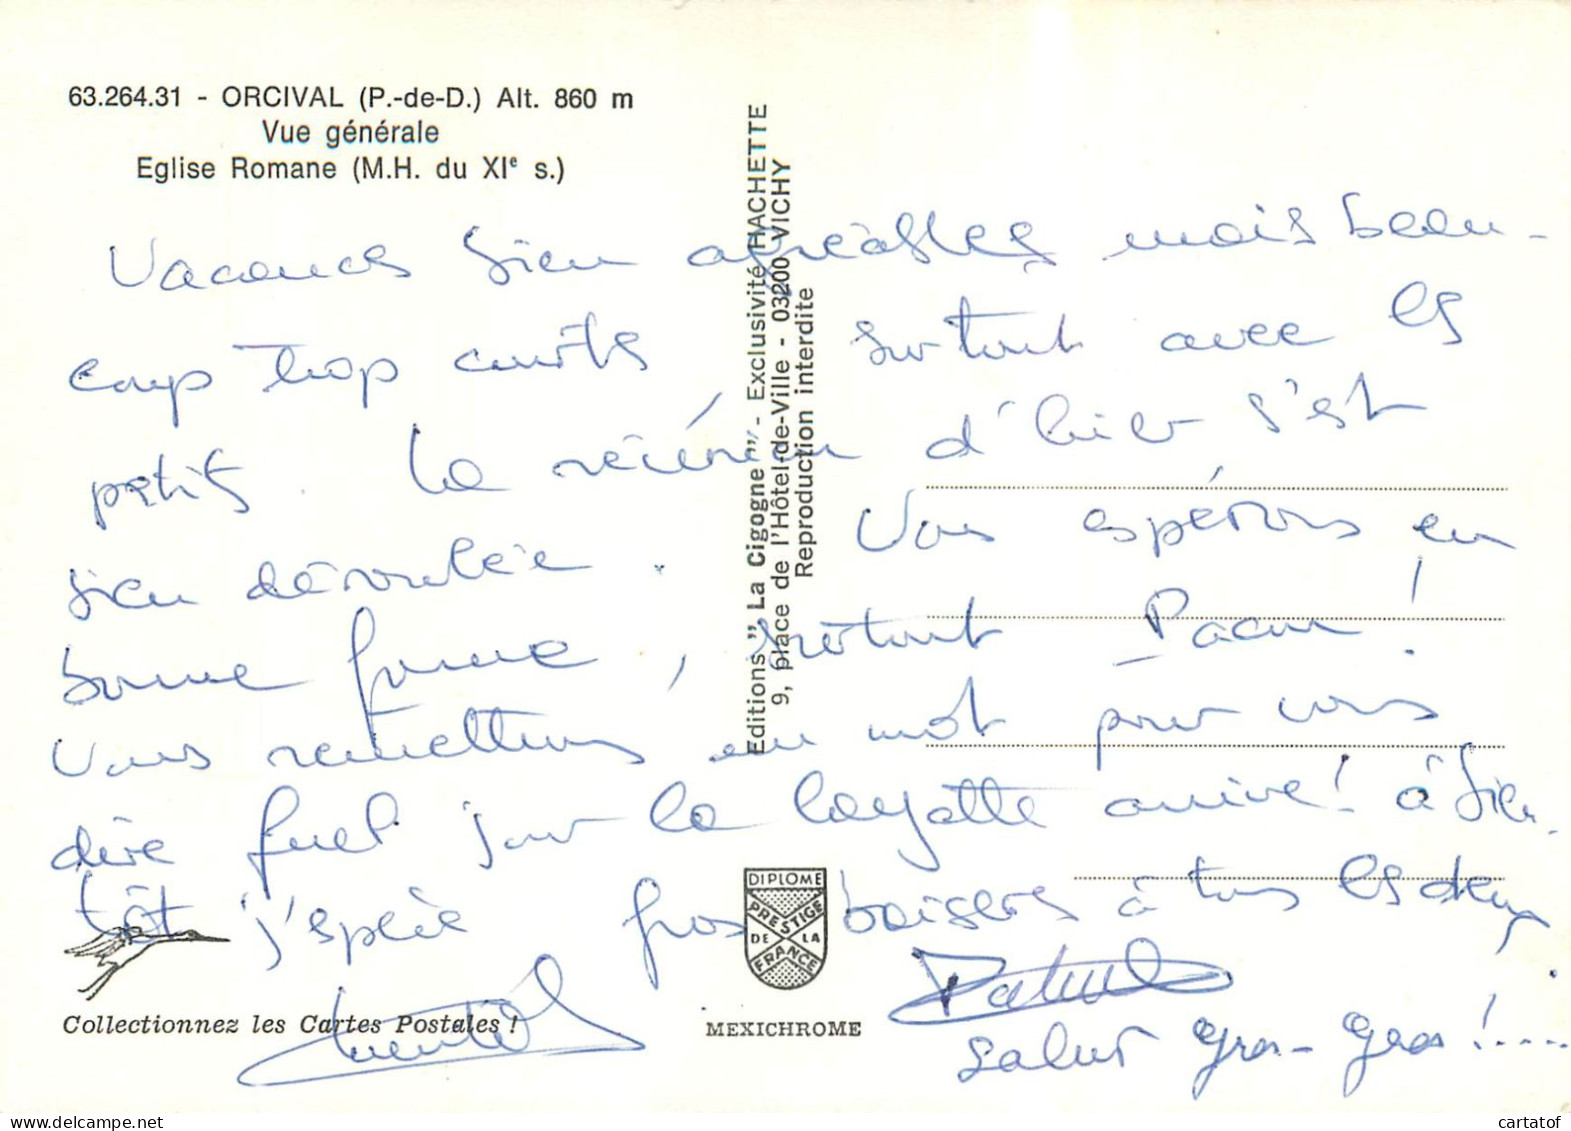 63.264.31 - ORCIVAL (P.-de-D.) Alt. 860 m
Vue générale
Eglise Romane (M.H. du XIe s.)
Editions " La Cigogne " - Exclusivité HACHETTE
9, place de l'Hôtel-de-Ville - 03200 VICHY
Reproduction interdite
Vacances bien agréables mais beau-
coup trop courts, surtout avec les
petits. La réunion d'hier s'est
bien déroulée. Vous espérons en
bonne forme, surtout !
Vous remettrons un mot pour vous
dire quel jour la layette arrive ! à bien-
tôt j'espère gros baisers à tous les deux
salut gros-gros !....
DIPLOME
PRESTIGE
DE LA
FRANCE
Collectionnez les Cartes Postales !
MEXICHROME
cartatof